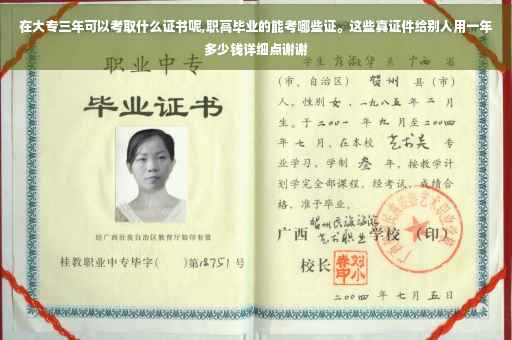 在大专三年可以考取什么证书呢,职高毕业的能考哪些证。这些真证件给别人用一年
多少钱详细点谢谢
职业中专
毕业证书
经广西壮族自治区教育厅验印有效
桂教职业中专毕字( )第18751号
学生
广西 省
(市、自治区) 贺州 县(市)
人，性别 女 ，一九八五年 二 月
生。于二〇〇一 年 九 月至二〇〇四
年 七 月，在本校 艺术类 专
业学习，学制 叁 年，按教学计
划学完全部课程，经考试，成绩合
格，准予毕业。
广西 贺州民族旅游
艺术职业 学校 (印)
校长
二〇〇四 年 七 月 五 日